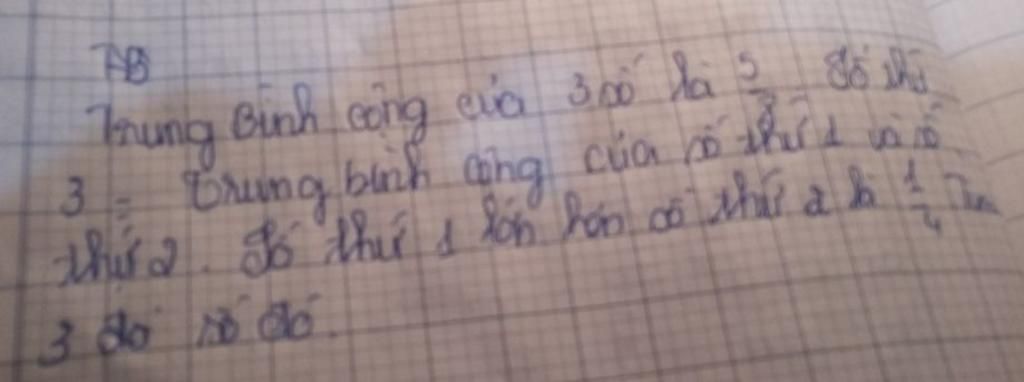 Trung Bình cộng của 3 số là Số thứ
3 = trung bình cộng của số thứ 1 và số
thứ 2. Số thứ 1 lớn hơn số thứ 2 là 1/4 Tìm
3 số đó.